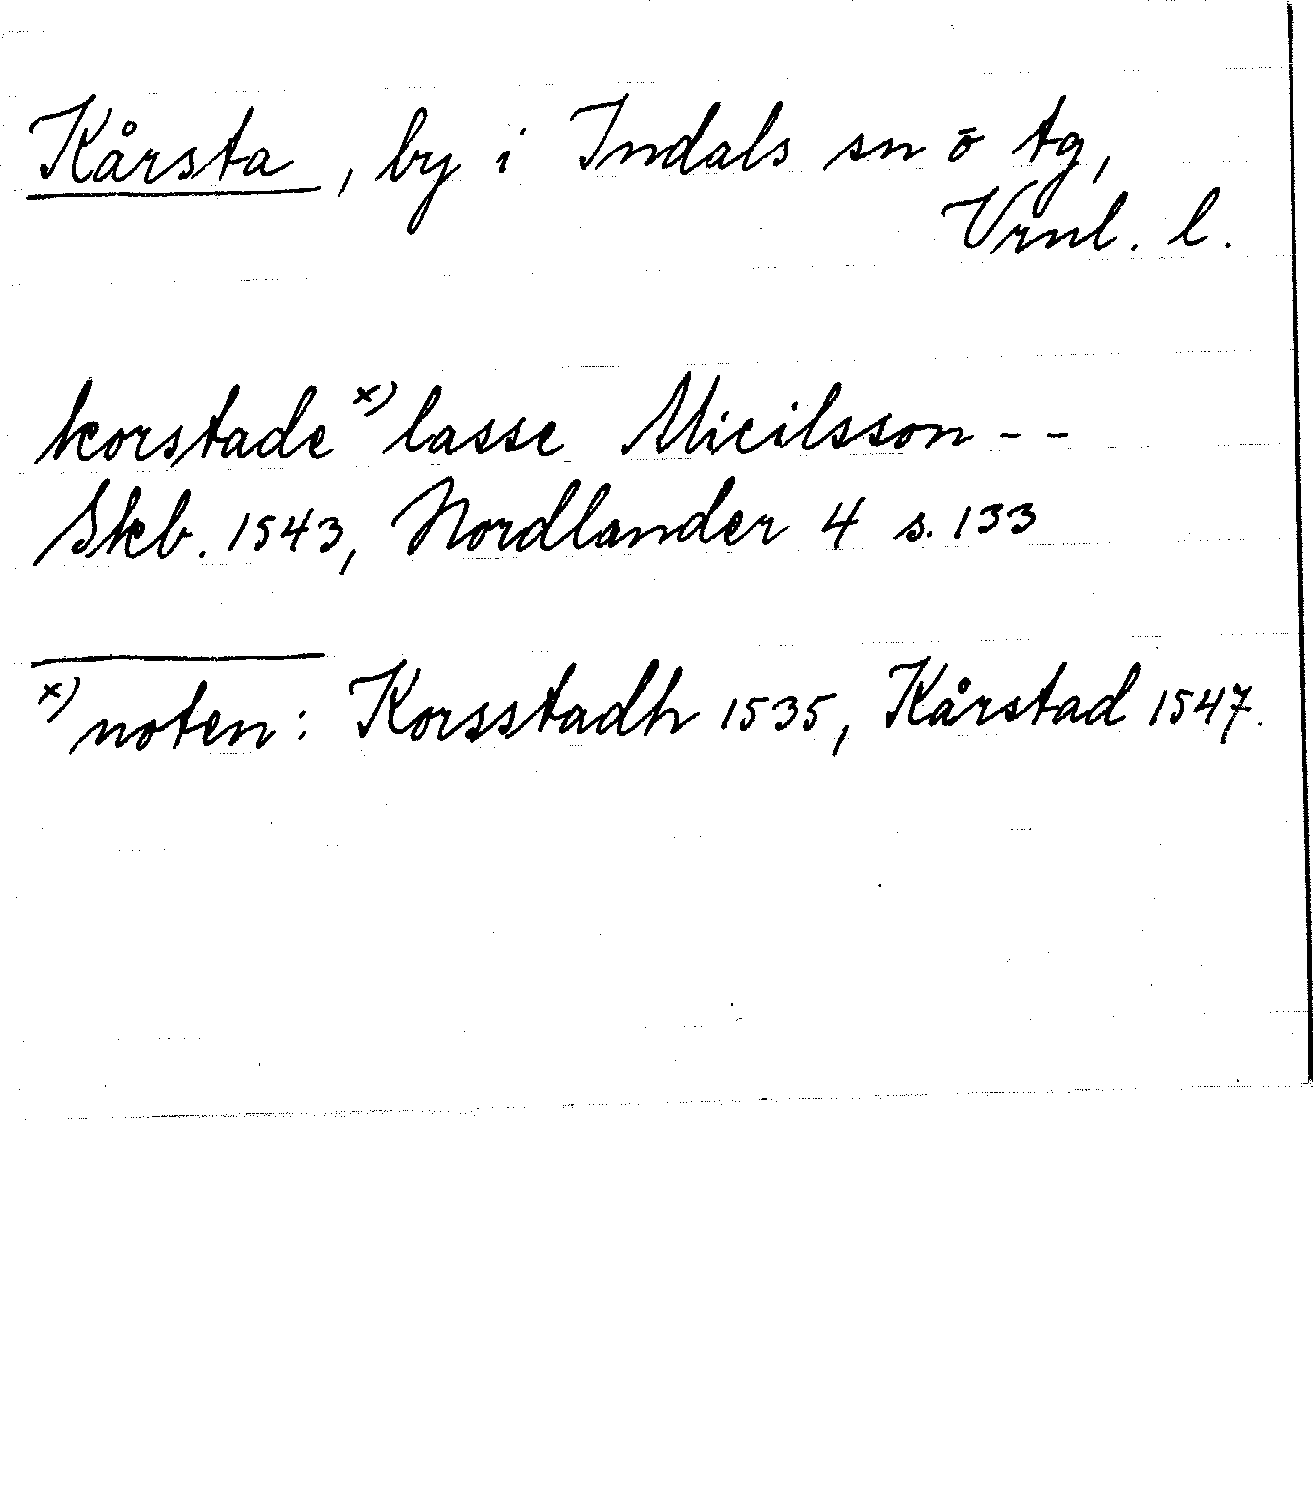 Kårsta, by i Indals sn o tg,
Vrnl. l.
korstade x) lasse Micilsson - -
Skb. 1543, Nordlander 4 s. 133
x) noten: Korsstadh 1535, Kårstad 1547.